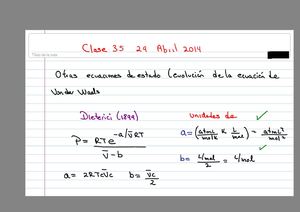 Clase 35 29 Abril 2014
Título de la nota
Otras ecuaciones de estado (evolución de la ecuación de
Van der Waals
Dieterici (1899)
P̄ = RTe^-a/v̄RT / v̄-b
a = 2RTcv̄c b = v̄c/2
Unidades de
a = (atmL/molK K L/mol) = atmL²/mol²
b = L/mol / 2 = L/mol